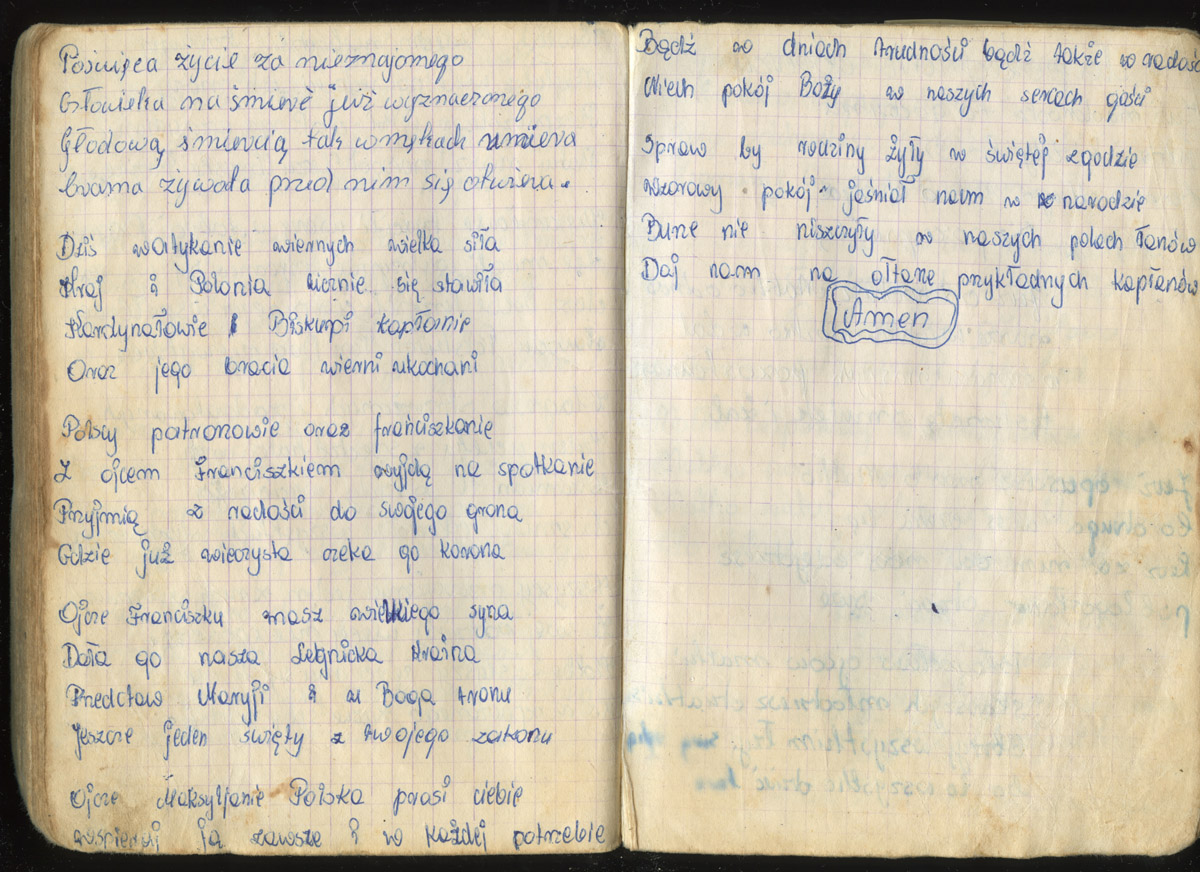 Poświęca życie za nieznajomego
Człowieka na śmierć już wyznaczonego
Głodową śmiercią tak w mękach umiera
brama żywała przed nim się otwiera.
Dziś watykanie wiernych wielka siła
Kraj i Polonia licznie się stawiła
Kardynałowie i Biskupi kapłanie
Oraz jego bracia wierni ukochani
Polscy patronowie oraz franciszkanie
Z ojcem Franciszkiem wyjdą na spotkanie
Przyjmią z radości do swojego grona
Gdzie już wieczysta czeka go korona
Ojcze Franciszku masz wielkiego syna
Dała go nasza Legnicka kraina
Predctaw Maryji i u Boga tronu
Jeszcze jeden święty z twojego zakonu
Ojcze Maksyljanie Polska prosi ciebie
wspieraj ją zawsze i w każdej potrzebie
Bądź w dniach trudności bądź także w radości
Niech pokój Boży w naszych sercach gości
Spraw by rodziny żyły w świętej zgodzie
Wzorowy pokój jaśniał nam w narodzie
Burze nie niszczyły w naszych polach łanów
Daj nam na ołtarze przykładnych kapłanów
Amen